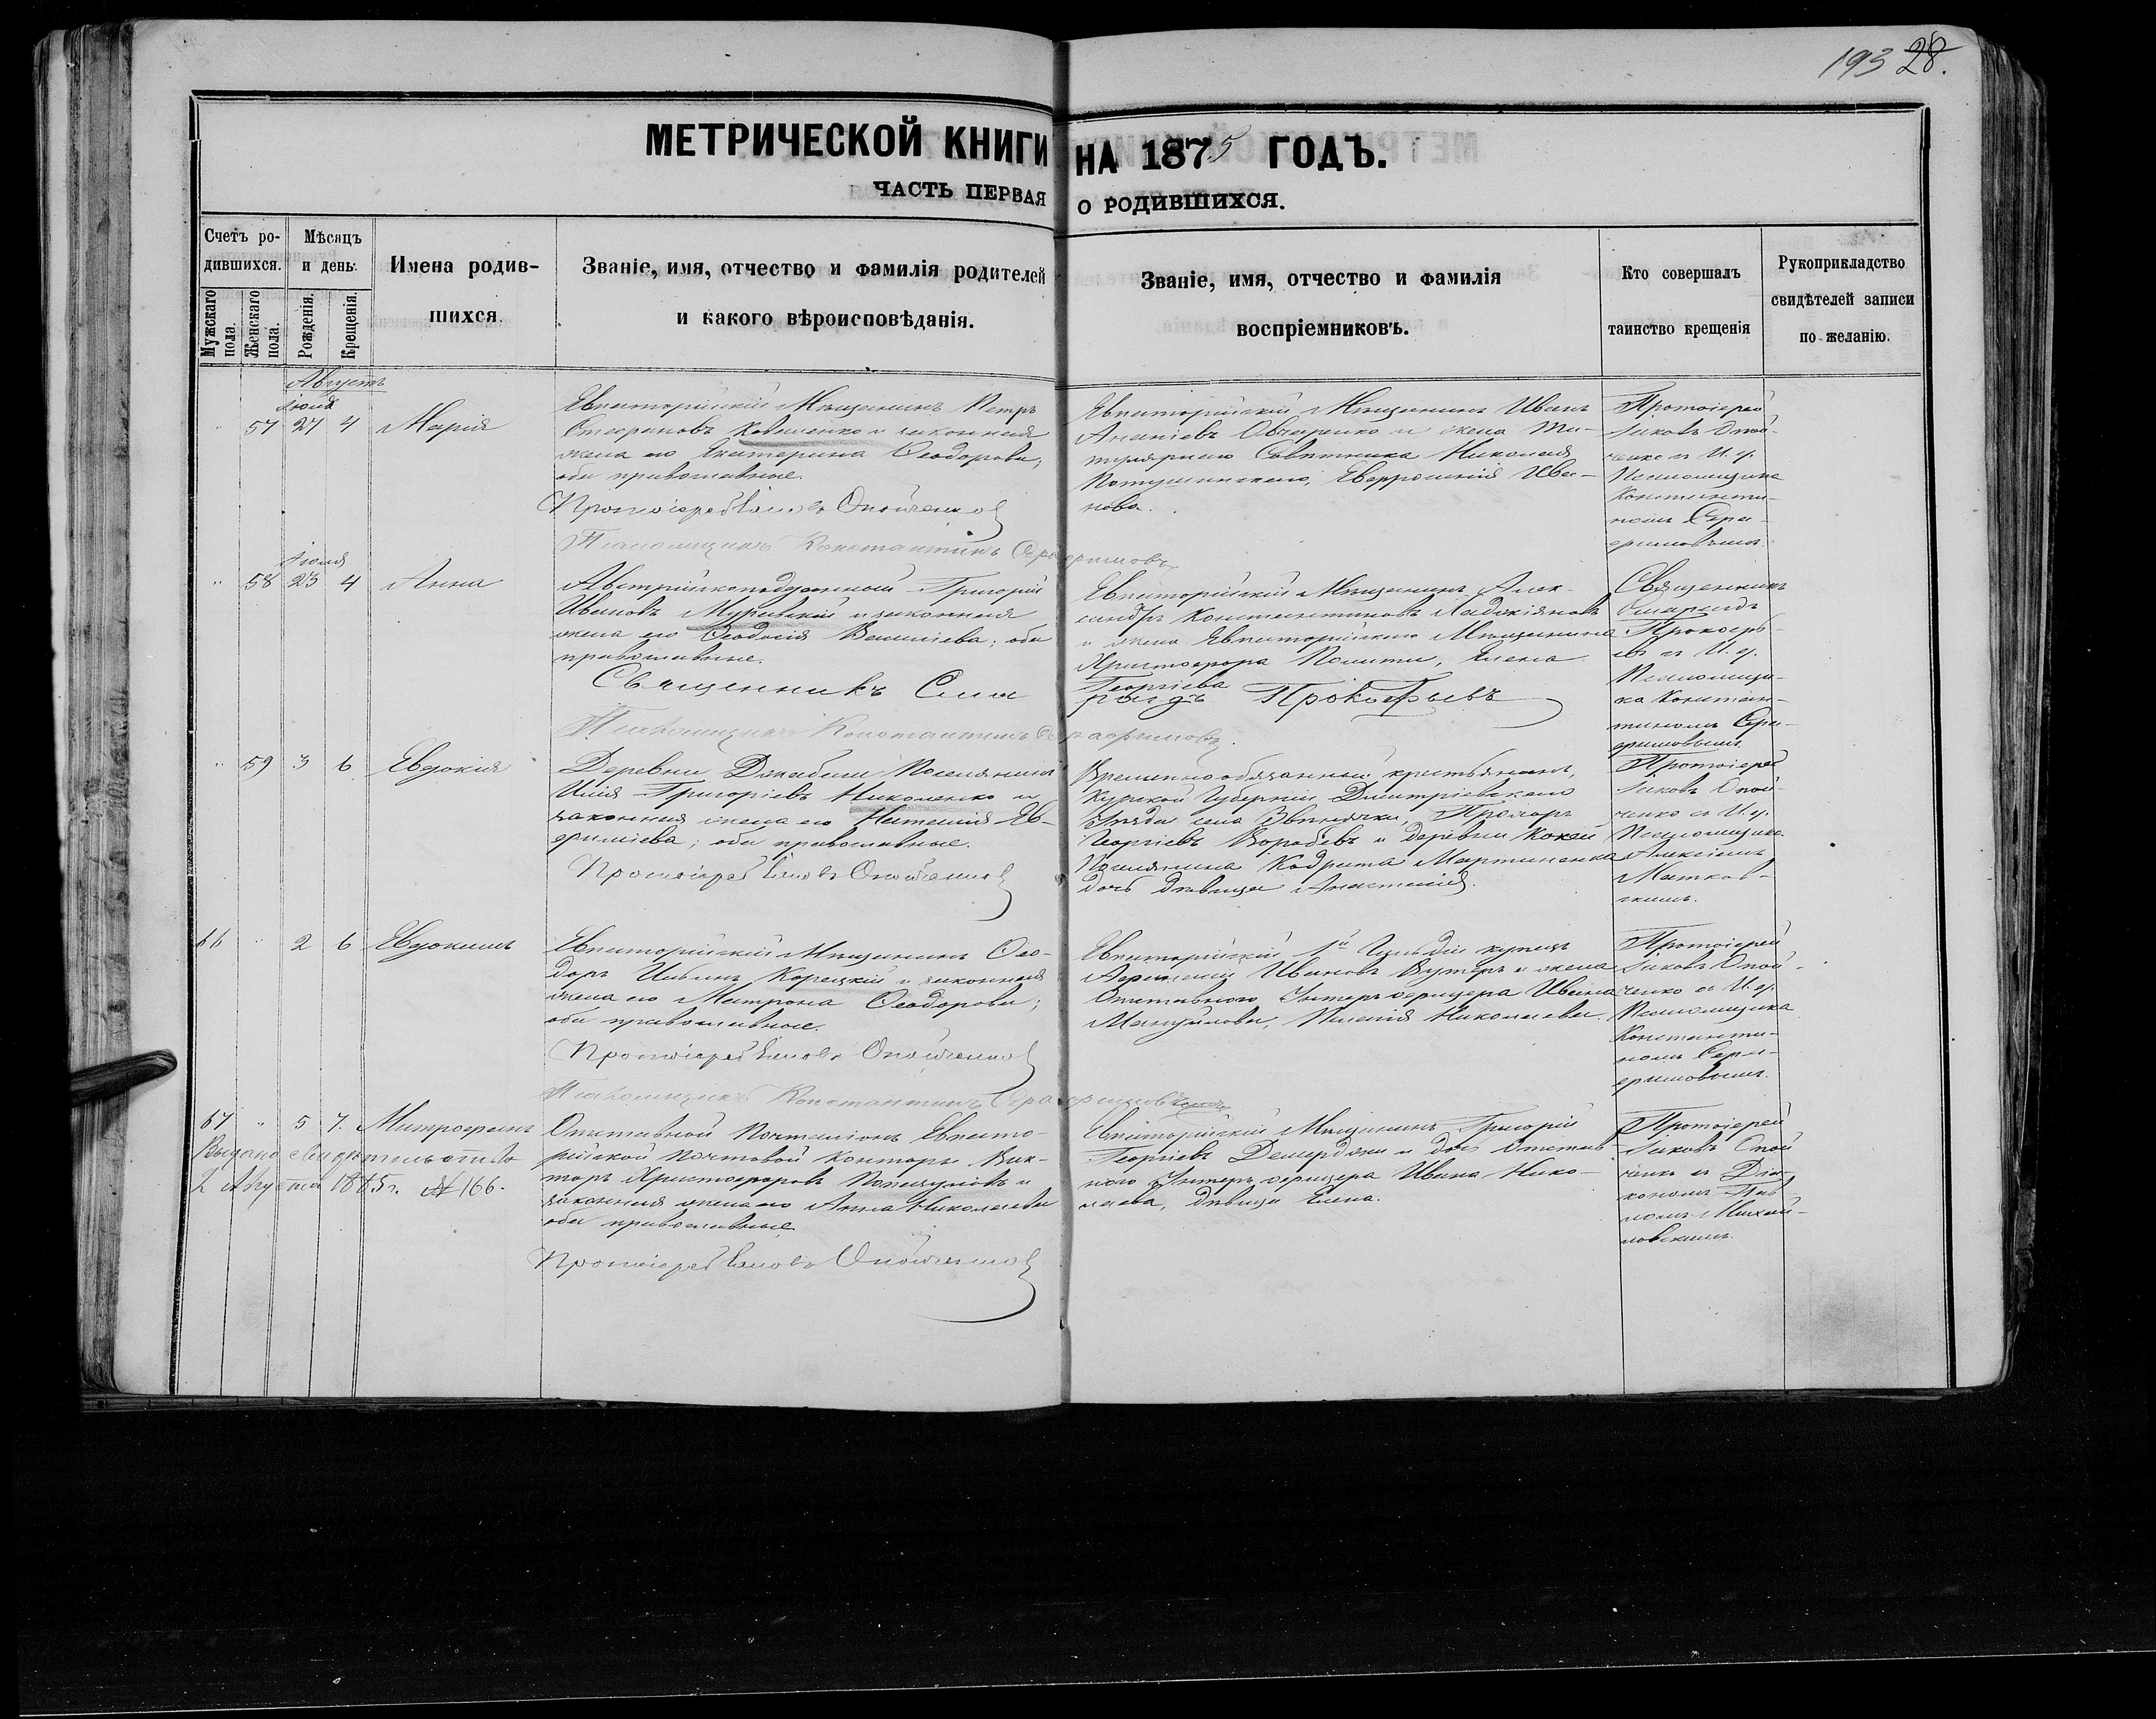 193 28.
МЕТРИЧЕСКОЙ КНИГИ НА 1875 ГОДЪ.
ЧАСТЬ ПЕРВАЯ О РОДИВШИХСЯ.
Счетъ ро-
дившихся.
Мужскаго пола.
Женскаго пола.
Мѣсяцъ
и день.
Рожденія.
Крещенія.
Имена родив-
шихся.
Званіе, имя, отчество и фамилія родителей
и какого вѣроисповѣданія.
Званіе, имя, отчество и фамилія
воспріемниковъ.
Кто совершалъ
таинство крещенія
Рукоприкладство
свидѣтелей записи
по желанію.
Августъ
Іюля
57 27 4 Марія
Евпаторійскій Мѣщанинъ Петръ
Стефановъ Коваленко и законная
жена его Екатерина Ѳеодорова,
оба православные.
Протоіерей Іаковъ Опойченко
Псаломщикъ Константинъ Серафимовъ
Евпаторійскій Мѣщанинъ Иванъ
Ананіевъ Овчаренко и жена Ти-
тулярнаго Совѣтника Николая
Евфросинія Ива-
нова.
Протоіерей
Іаковъ Опой-
ченко съ И. д.
Псаломщика
Константи-
номъ Сера-
фимовымъ.
Іюля
58 23 4 Анна
Австрійскоподданный Григорій
Ивановъ и законная
жена его Ѳеодосія Василіева; оба
православные.
Священникъ Смарагдъ Прокофьевъ
Псаломщикъ Константинъ Серафимовъ.
Евпаторійскій Мѣщанинъ Алек-
сандръ Константиновъ
и жена Евпаторійскаго Мѣщанина
Христофора Полити, Елена
Георгіева
Священникъ
Смарагдъ
Прокофь-
евъ съ И. д.
Псаломщи-
ка Констан-
тиномъ Сера-
фимовымъ.
59 3 6 Евдокія
Деревни Поселянинъ
Илія Григорьевъ Николенко и
законная жена его Наталія Ев-
фиміева; оба православные.
Протоіерей Іаковъ Опойченко
Временнообязанный крестьянинъ,
Курской Губерніи Дмитріевскаго
Уѣзда села Прохоръ
Георгіевъ и деревни
Поселянина Кодрата Мартиненка
дочь дѣвица Анастасія.
Протоіерей
Іаковъ Опой-
ченко съ И. д.
Псаломщика
Алексіемъ
Матков-
скимъ.
66 2 6 Евдокимъ
Евпаторійскій Мѣщанинъ Ѳео-
доръ Корецкій и законная
жена его Матрона Ѳеодорова;
оба православные.
Протоіерей Іаковъ Опойченко
Псаломщикъ Константинъ Серафимовъ
Евпаторійскій 1й Гильдіи купецъ
Ивановъ и жена
Отставного Унтеръ офицера Ивана
Мануйлова, Николаева
Протоіерей
Іаковъ Опой-
ченко съ И. д.
Псаломщика
Константи-
номъ Сера-
фимовымъ.
67 5 7. Митрофанъ
Выдано свидѣтельство
2 Августа 1885 г. № 166.
Отставной Почталіонъ Евпато-
рійской Почтовой Конторы Вик-
торъ Христофоровъ и
законная жена его Анна Николаева
оба православные
Протоіерей Іаковъ Опойченко
Евпаторійскій Мѣщанинъ Григорій
Георгіевъ Демерджи и дочь Отстав-
ного Унтеръ офицера Ивана Нико-
лаева, дѣвица Елена.
Протоіерей
Іаковъ Опой-
ченко съ Діа-
кономъ Пав-
ломъ Михай-
ловскимъ.